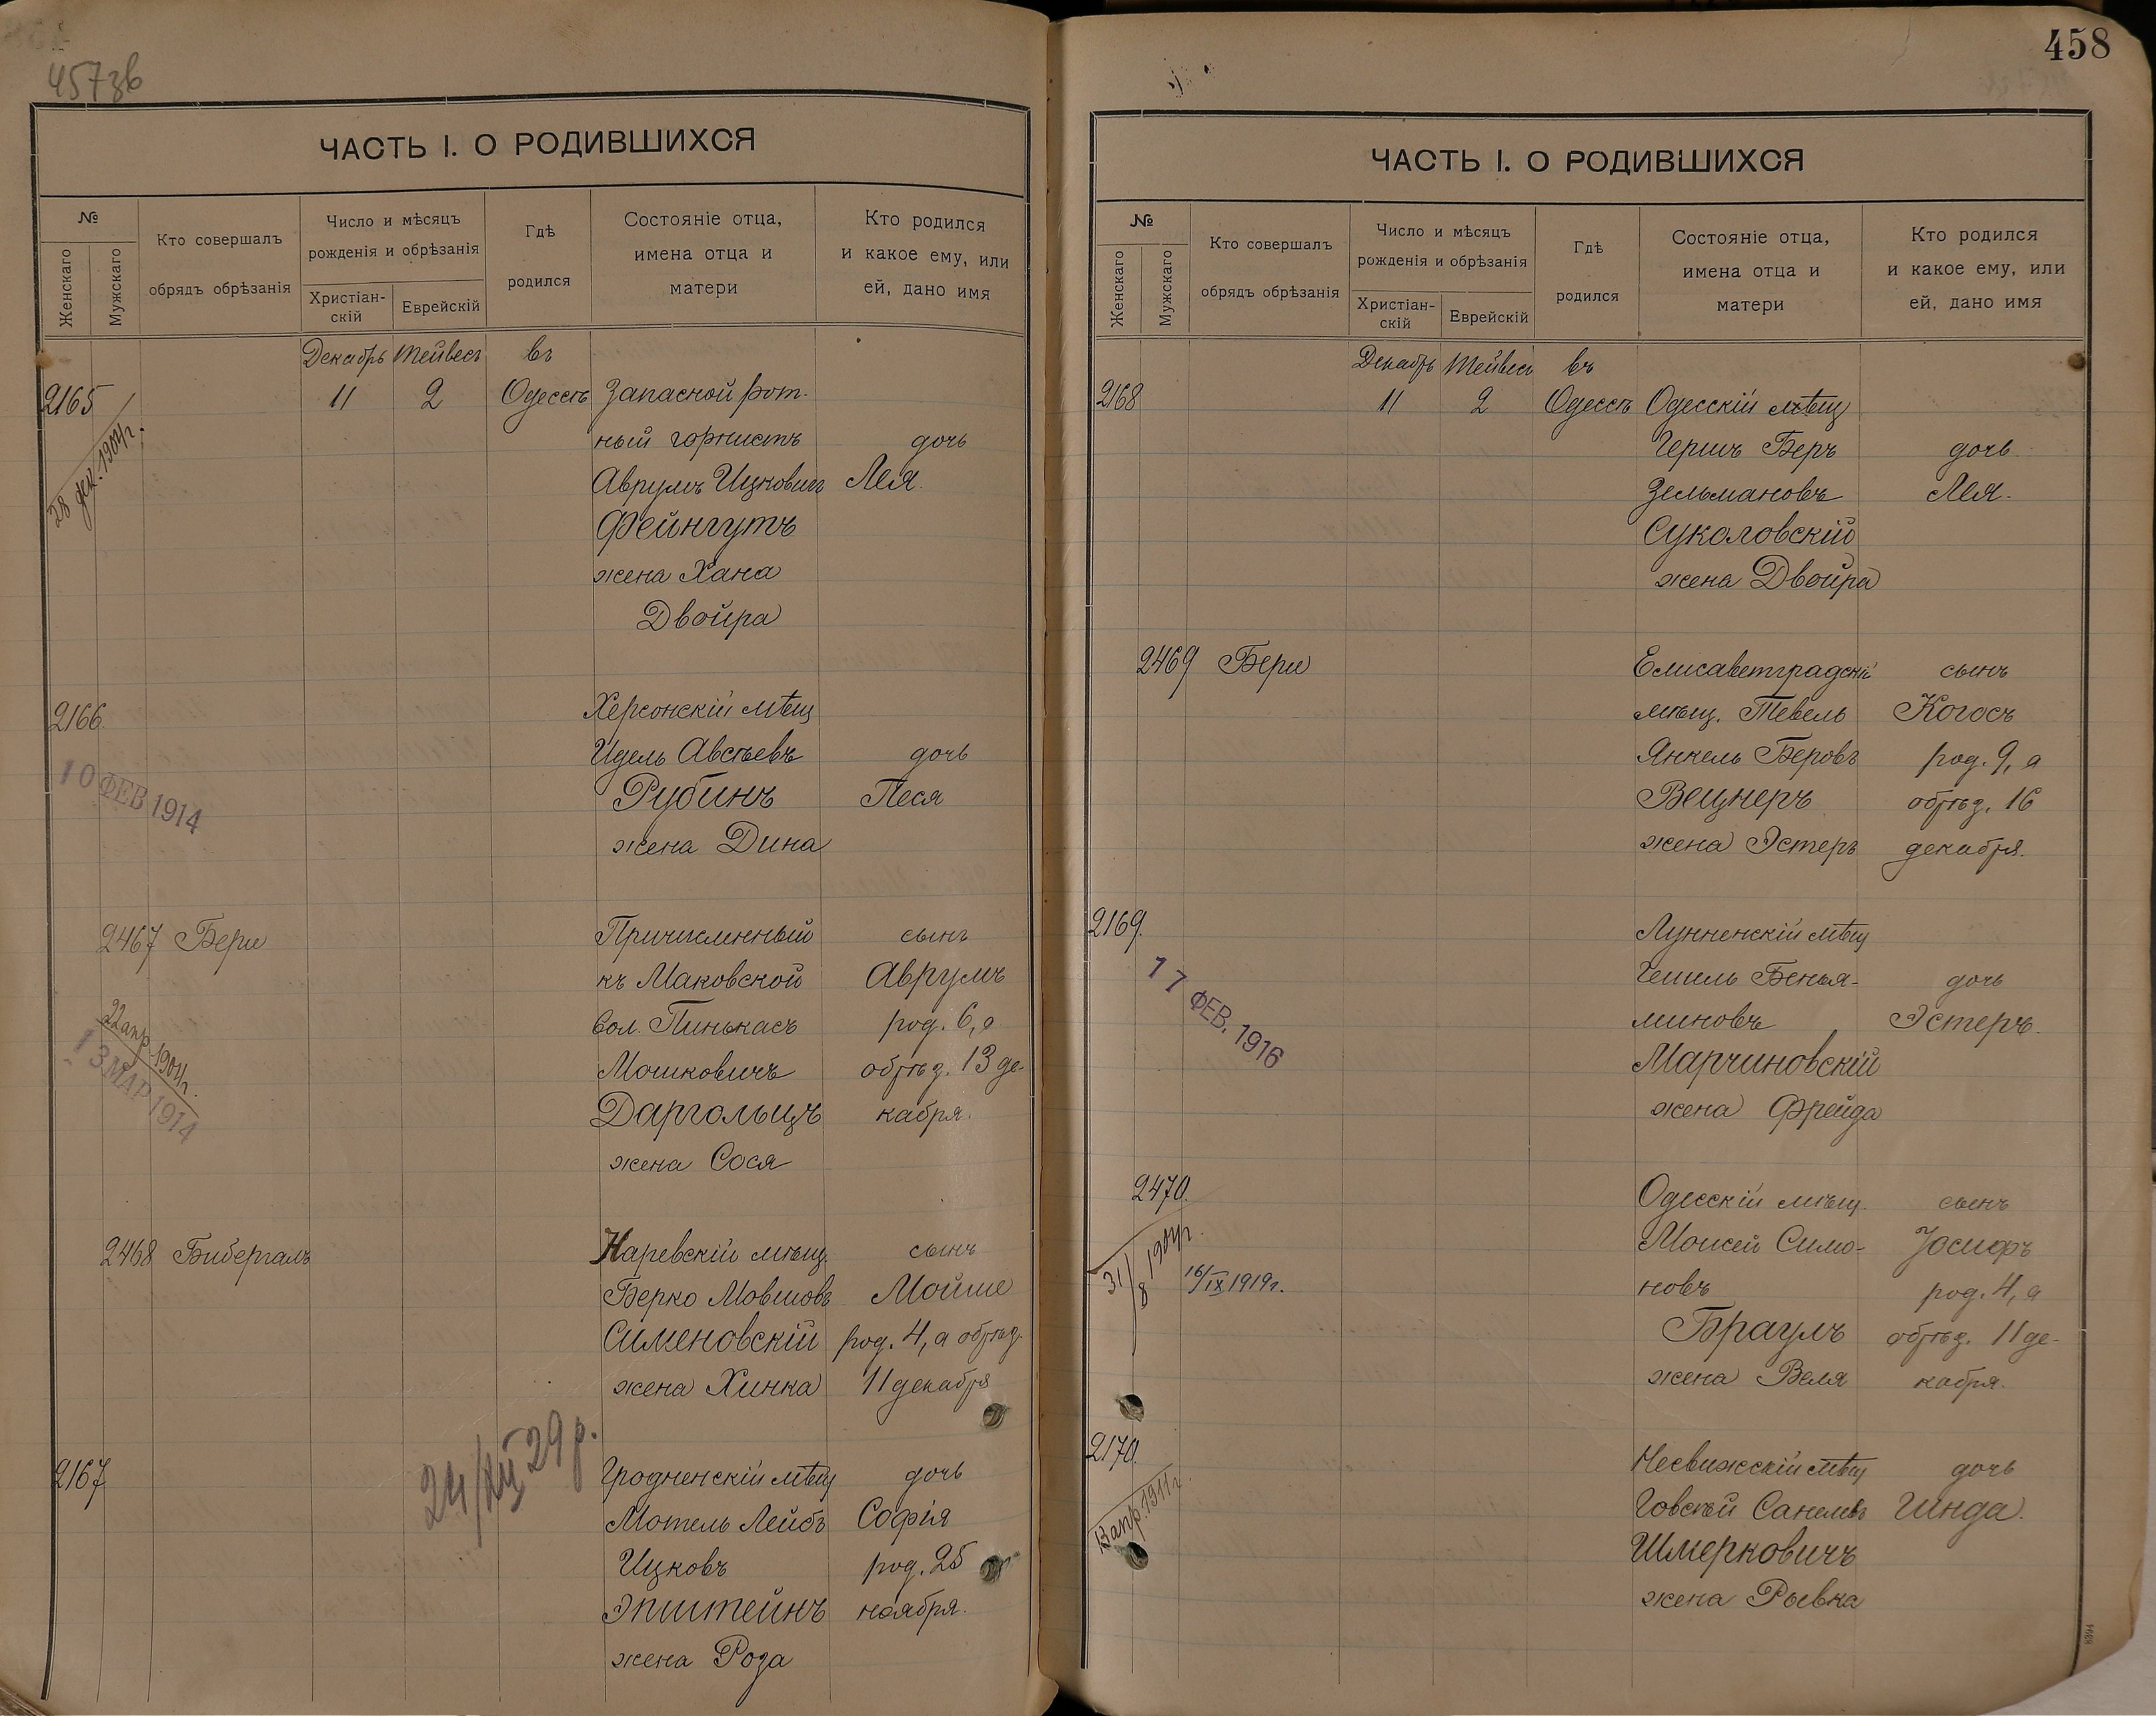 457зв
ЧАСТЬ I. О РОДИВШИХСЯ
№
Женскаго
Мужскаго
Кто совершалъ
обрядъ обрѣзанія
Число и мѣсяцъ
рожденія и обрѣзанія
Христіан-
скій
Еврейскій
Гдѣ
родился
Состояніе отца,
имена отца и
матери
Кто родился
и какое ему, или
ей, дано имя
Декабрь Тейвесъ въ
2165 11 2 Одессѣ Запасной рот-
ный горнистъ дочь
28 дек. 1904г.
Аврумъ Ицковичъ Лея.
Фейнгутъ
жена Хана
Двойра
2166 Херсонскій мѣщ
Идель Авсѣевъ дочь
10 ФЕВ 1914
Рубинъ Песя
жена Дина
2467 Бери Причисленный сынъ
къ Маковской Аврумъ
вол. Пинькасъ род. 6, а
22 апр. 1904г.
13 МАР 1914
Мошковичъ обрѣз. 13 де-
Даргольцъ кабря.
жена Сося
2468 Бибергалъ Наревскій мѣщ. сынъ
Берко Мовшовъ Мойше
Сименовскій род. 4, а обрѣз.
жена Хинка 11 декабря
24/XII 29р.
2167 Гродненскій мѣщ дочь
Мотель Лейбъ Софія
Ицковъ род. 25
Эпштейнъ ноября.
жена Роза
458
ЧАСТЬ I. О РОДИВШИХСЯ
№
Женскаго
Мужскаго
Кто совершалъ
обрядъ обрѣзанія
Число и мѣсяцъ
рожденія и обрѣзанія
Христіан-
скій
Еврейскій
Гдѣ
родился
Состояніе отца,
имена отца и
матери
Кто родился
и какое ему, или
ей, дано имя
Декабрь Тейвесъ въ
2168 11 2 Одессѣ Одесскій мѣщ
Гершъ Беръ дочь
Зельмановъ Лея.
Сукаловскій
жена Двойра
2469 Бери Елисаветградскій сынъ
мѣщ. Тевель Когосъ
Янкель Беровъ род. 9, а
Вецнеръ обрѣз. 16
жена Эстеръ декабря.
2169. Лунненскій мѣщ
Гешель Бенья- дочь
17 ФЕВ. 1916
миновъ Эстеръ.
Марчиновскій
жена Фрейда
2470. Одесскій мѣщ. сынъ
Моисей Симо- Іосифъ
31/8 1904г.
16/IX 1919г.
новъ род. 4, а
Браулъ обрѣз. 11 де-
жена Веля кабря.
2170. Несвижскій мѣщ дочь
Говсѣй Санелевъ Гинда.
13 апр. 1911г.
Шмерковичъ
жена Рывка
8394